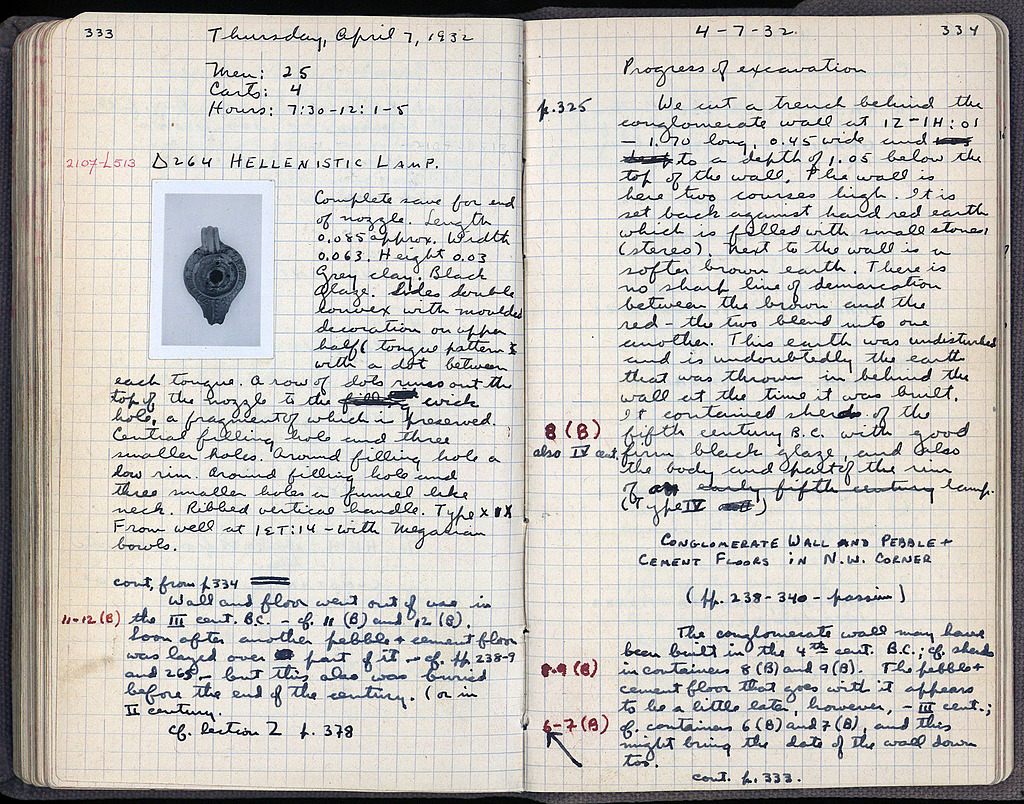 333
Thursday, April 7, 1932
Men: 25
Carts: 4
Hours: 7:30-12: 1-5
2107-L513 Δ264 HELLENISTIC LAMP.
Complete save for end
of nozzle. Length
0.085 approx. Width
0.063. Height 0.03
Grey clay. Black
Glaze. Sides double
convex with moulded
decoration on upper
half (tongue pattern
with a dot between
each tongue. A row of dots runs out the
top of the nozzle to the wick
hole, a fragment of which is preserved.
Central filling hole and three
smaller holes. Around filling hole a
low rim. Around filling hole and
three smaller holes a funnel like
neck. Ribbed vertical handle. Type
From well at 15T:14 - with Megarian
bowls.
cont, from p334
Wall and floor went out of use in
11-12 (B) the III cent. B.C. - cf. 11 (B) and 12 (B).
Soon after another pebble + cement floor
was layed over part of it - cf. pp. 238-9
and 265 - but this also was buried
before the end of the century. (or in
II century.
cf. Section Z p. 378
4-7-32.
334
Progress of excavation
p.325 We cut a trench behind the
conglomerate wall at 12-1H:01
- 1.70 long, 0.45 wide and
to a depth of 1.05 below the
top of the wall. The wall is
here two courses high. It is
set back against hard red earth
which is filled with small stones
(stereo). Next to the wall is a
softer brown earth. There is
no sharp line of demarcation
between the brown and the
red - the two blend into one
another. This earth was undisturbed
and is undoubtedly the earth
that was thrown in behind the
wall at the time it was built.
It contained sherds of the
8 (B) fifth century B.C. with good
also IV cent. firm black glaze, and also
the body and part of the rim
of an early fifth century lamp.
(Type IV)
CONGLOMERATE WALL AND PEBBLE +
CEMENT FLOORS IN N.W. CORNER
(pp. 238-340 - passim)
The conglomerate wall may have
been built in the 4th cent. B.C.; cf. sherds
8-9 (B) in containers 8 (B) and 9 (B). The pebble +
cement floor that goes with it appears
to be a little later, however, - III cent.;
6-7 (B) cf. containers 6 (B) and 7 (B), and this
might bring the date of the wall down
too.
cont. p. 333.